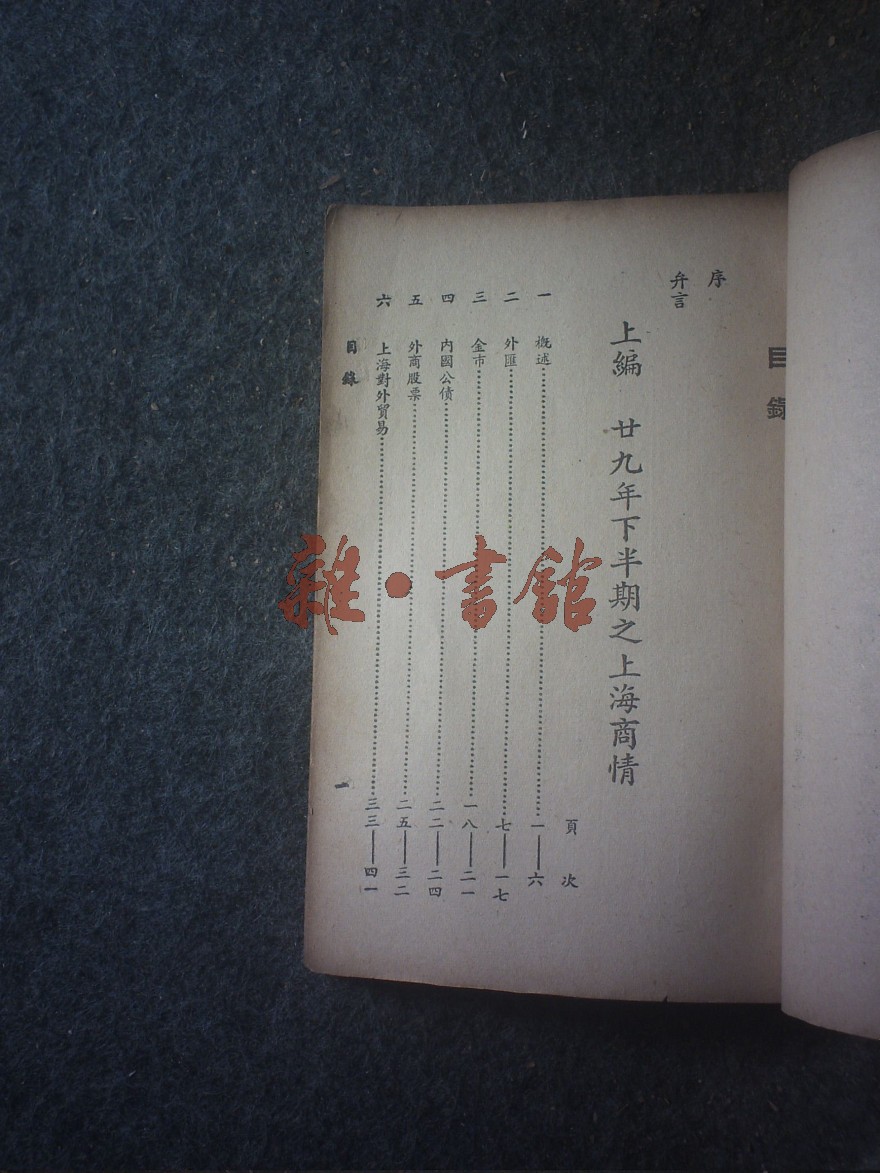 目錄
序
弁言
上編　廿九年下半期之上海商情
頁次
一　概述……一——六
二　外匯……七——一七
三　金市……一八——二一
四　內國公債……二二——二四
五　外商股票……二五——三二
六　上海對外貿易……三三——四一
目錄　一
雜·書館